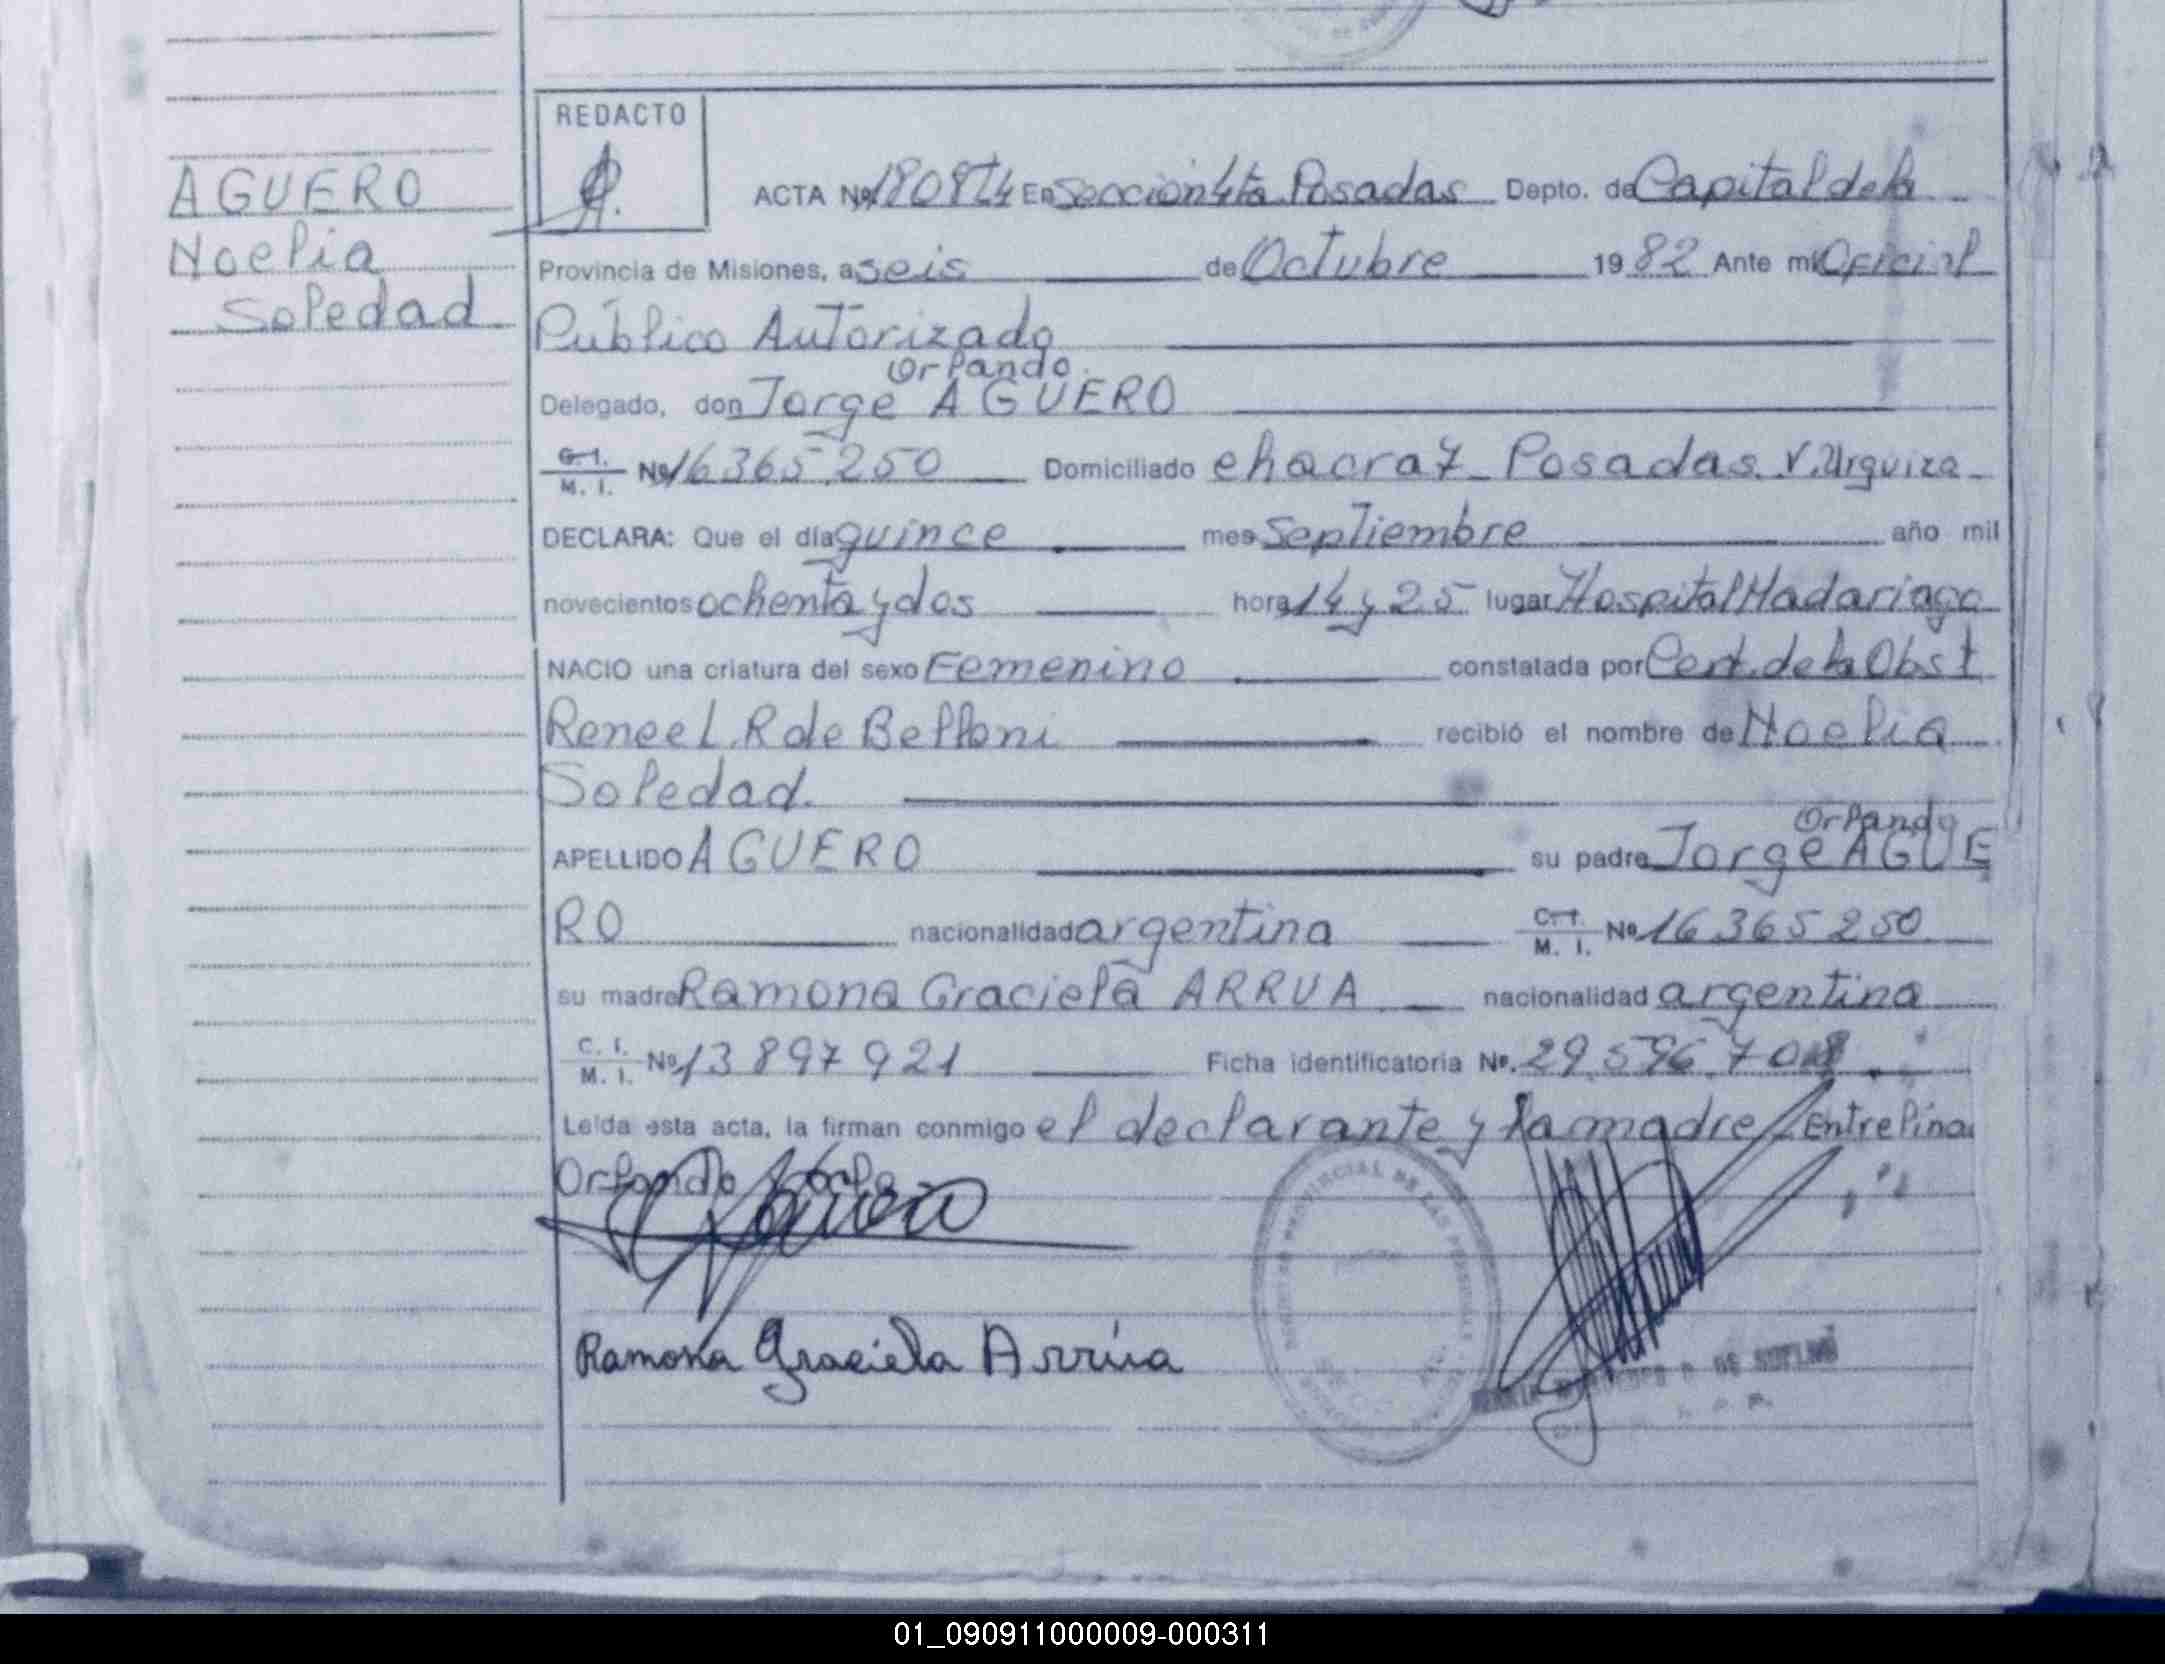 REDACTO
AGUERO
Noelia
Soledad
ACTA Nº En Sección 4ta Posadas Depto. de Capital de la
Provincia de Misiones, a seis de Octubre 1982 Ante mi Oficial
Público Autorizado
Orlando
Delegado, don Jorge AGUERO
C. I. M. I. Nº 16365250 Domiciliado chacra 7 Posadas V. Urquiza
DECLARA: Que el día quince mes Septiembre año mil
novecientos ochenta y dos hora 14 y 25 lugar Hospital Madariaga
NACIO una criatura del sexo Femenino constatada por Cert. de la Obst
Renee L. R de Belloni recibió el nombre de Noelia
Soledad.
Orlando
APELLIDO AGUERO su padre Jorge AGUE
RO nacionalidad argentina C. I. M. I. Nº 16365250
su madre Ramona Graciela ARRUA nacionalidad argentina
C. I. M. I. Nº 13897921 Ficha identificatoria Nº. 29.596.70
Leída esta acta, la firman conmigo el declarante y la madre / Entrelínea
Orlando vale
Ramona Graciela Arrúa
01_090911000009-000311